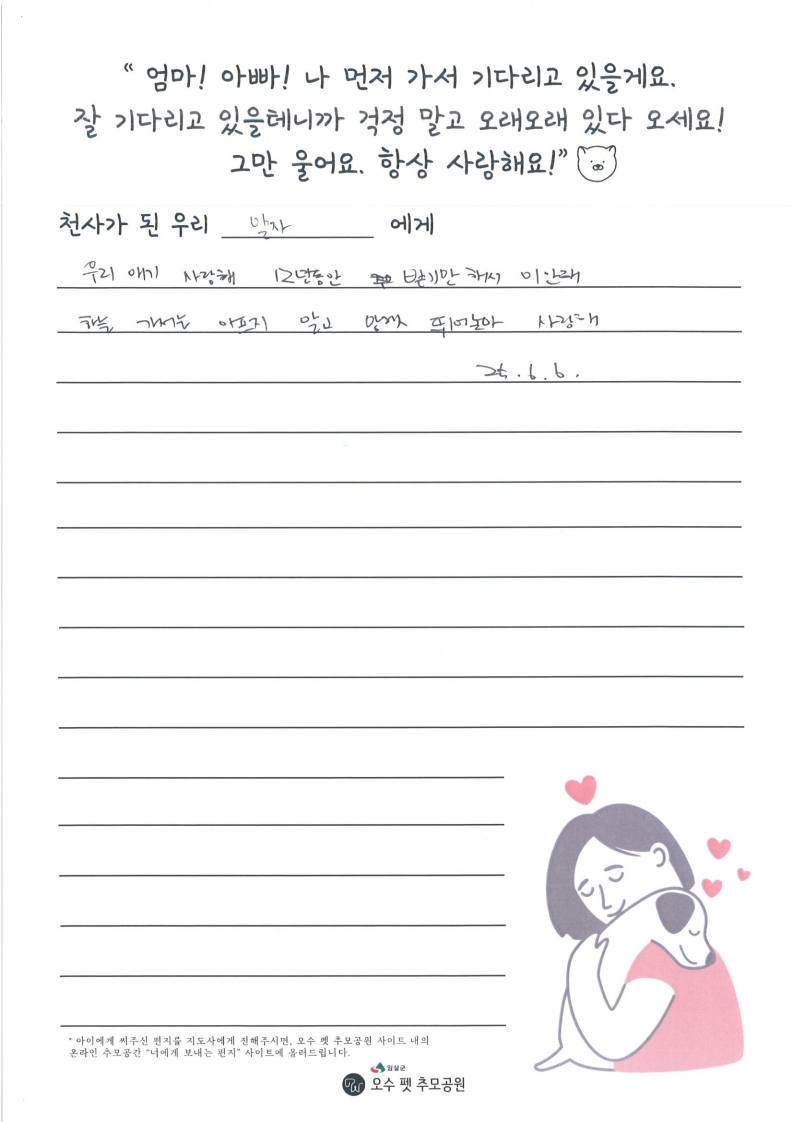 “ 엄마! 아빠! 나 먼저 가서 기다리고 있을게요.
잘 기다리고 있을테니까 걱정 말고 오래오래 있다 오세요!
그만 울어요. 항상 사랑해요!”
천사가 된 우리 말자 에게
우리 애기 사랑해 12년동안 받기만 해서 미안해
하늘 가서는 아프지 말고 맘껏 뛰어놀아 사랑해
25.6.6.
* 아이에게 써주신 편지를 지도사에게 전해주시면, 오수 펫 추모공원 사이트 내의
온라인 추모공간 “너에게 보내는 편지” 사이트에 올려드립니다.
임실군
오수 펫 추모공원